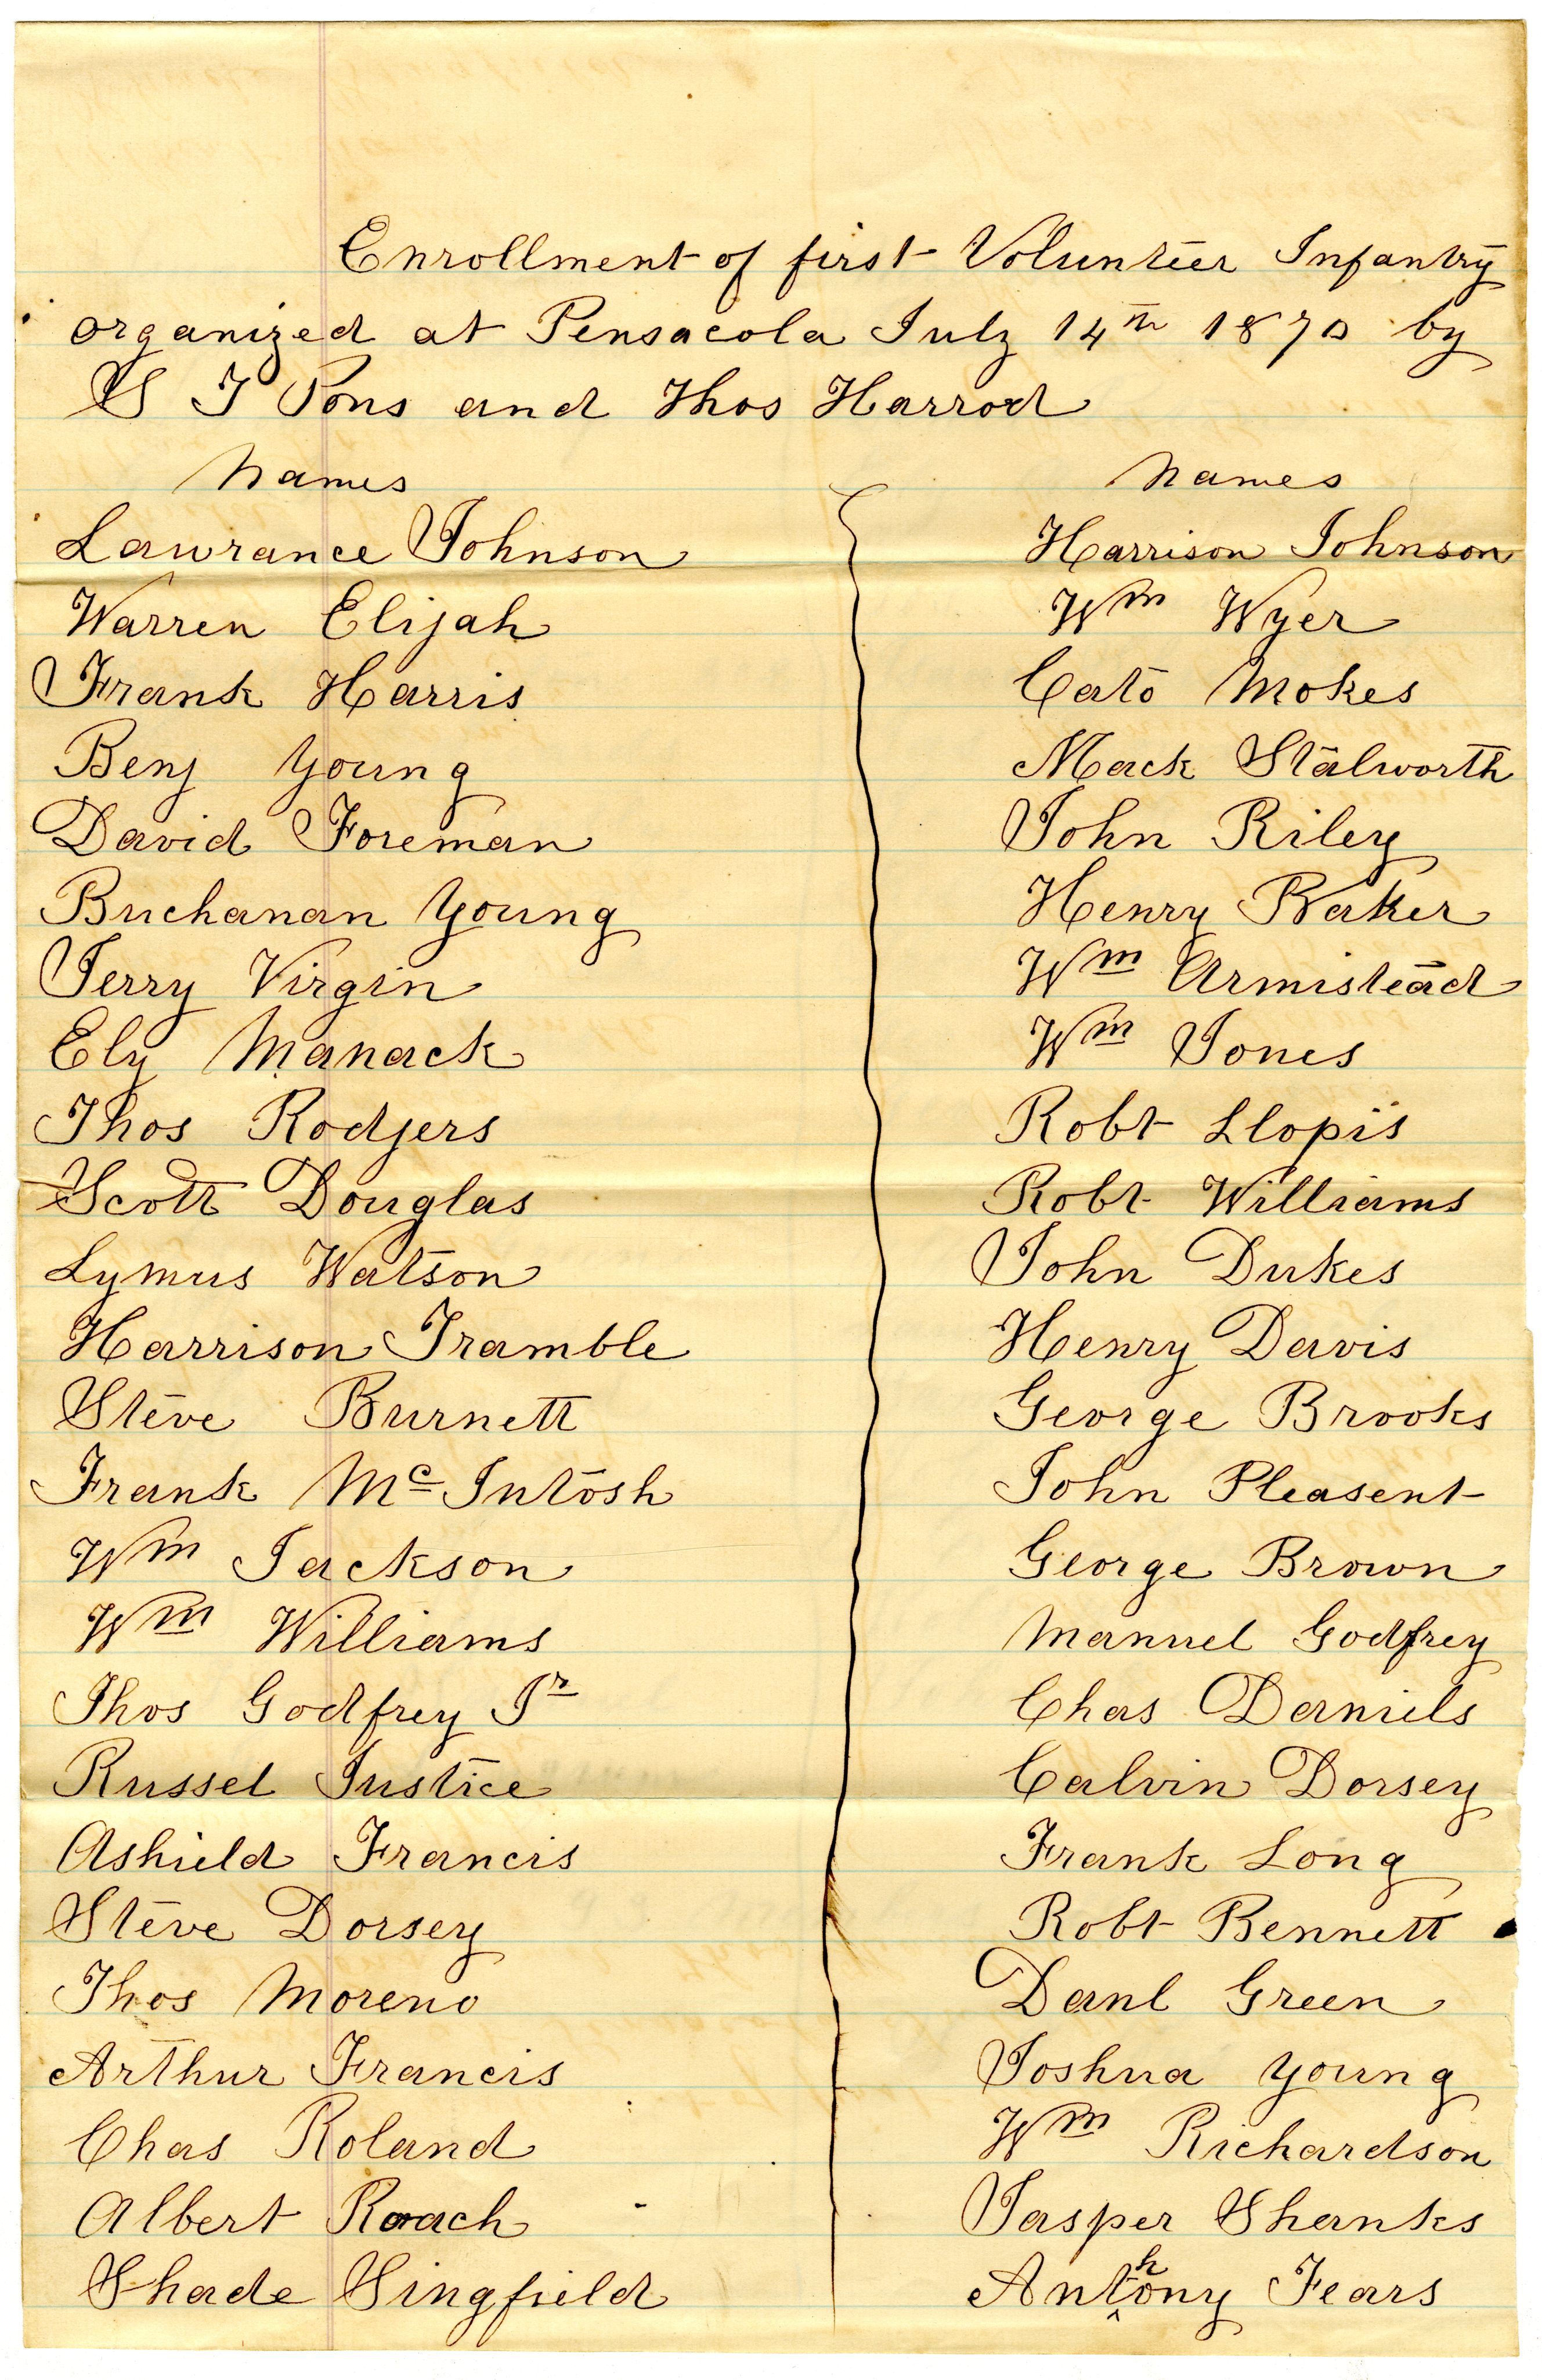 Enrollment of first Volunteer Infantry
organized at Pensacola July 14th 1870 by
S J Pons and Thos Harrod
Names
Lawrance Johnson
Warren Elijah
Frank Harris
Benj Young
David Foreman
Buchanan Young
Jerry Virgin
Ely Manack
Thos Rodgers
Scott Douglas
Lymus Watson
Harrison Tramble
Steve Burnett
Frank McIntosh
Wm Jackson
Wm Williams
Thos Godfrey Jr
Russel Justice
Ashield Francis
Steve Dorsey
Thos Moreno
Arthur Francis
Chas Roland
Albert Roach
Shade Singfield
Names
Harrison Johnson
Wm Wyer
Cato Mokes
Mack Stalworth
John Riley
Henry Baker
Wm Armistead
Wm Jones
Robt Llopis
Robt Williams
John Dukes
Henry Davis
George Brooks
John Pleasent
George Brown
Manuel Godfrey
Chas Daniels
Calvin Dorsey
Frank Long
Robt Bennett
Danl Green
Joshua Young
Wm Richardson
Jasper Shanks
Anthony Fears